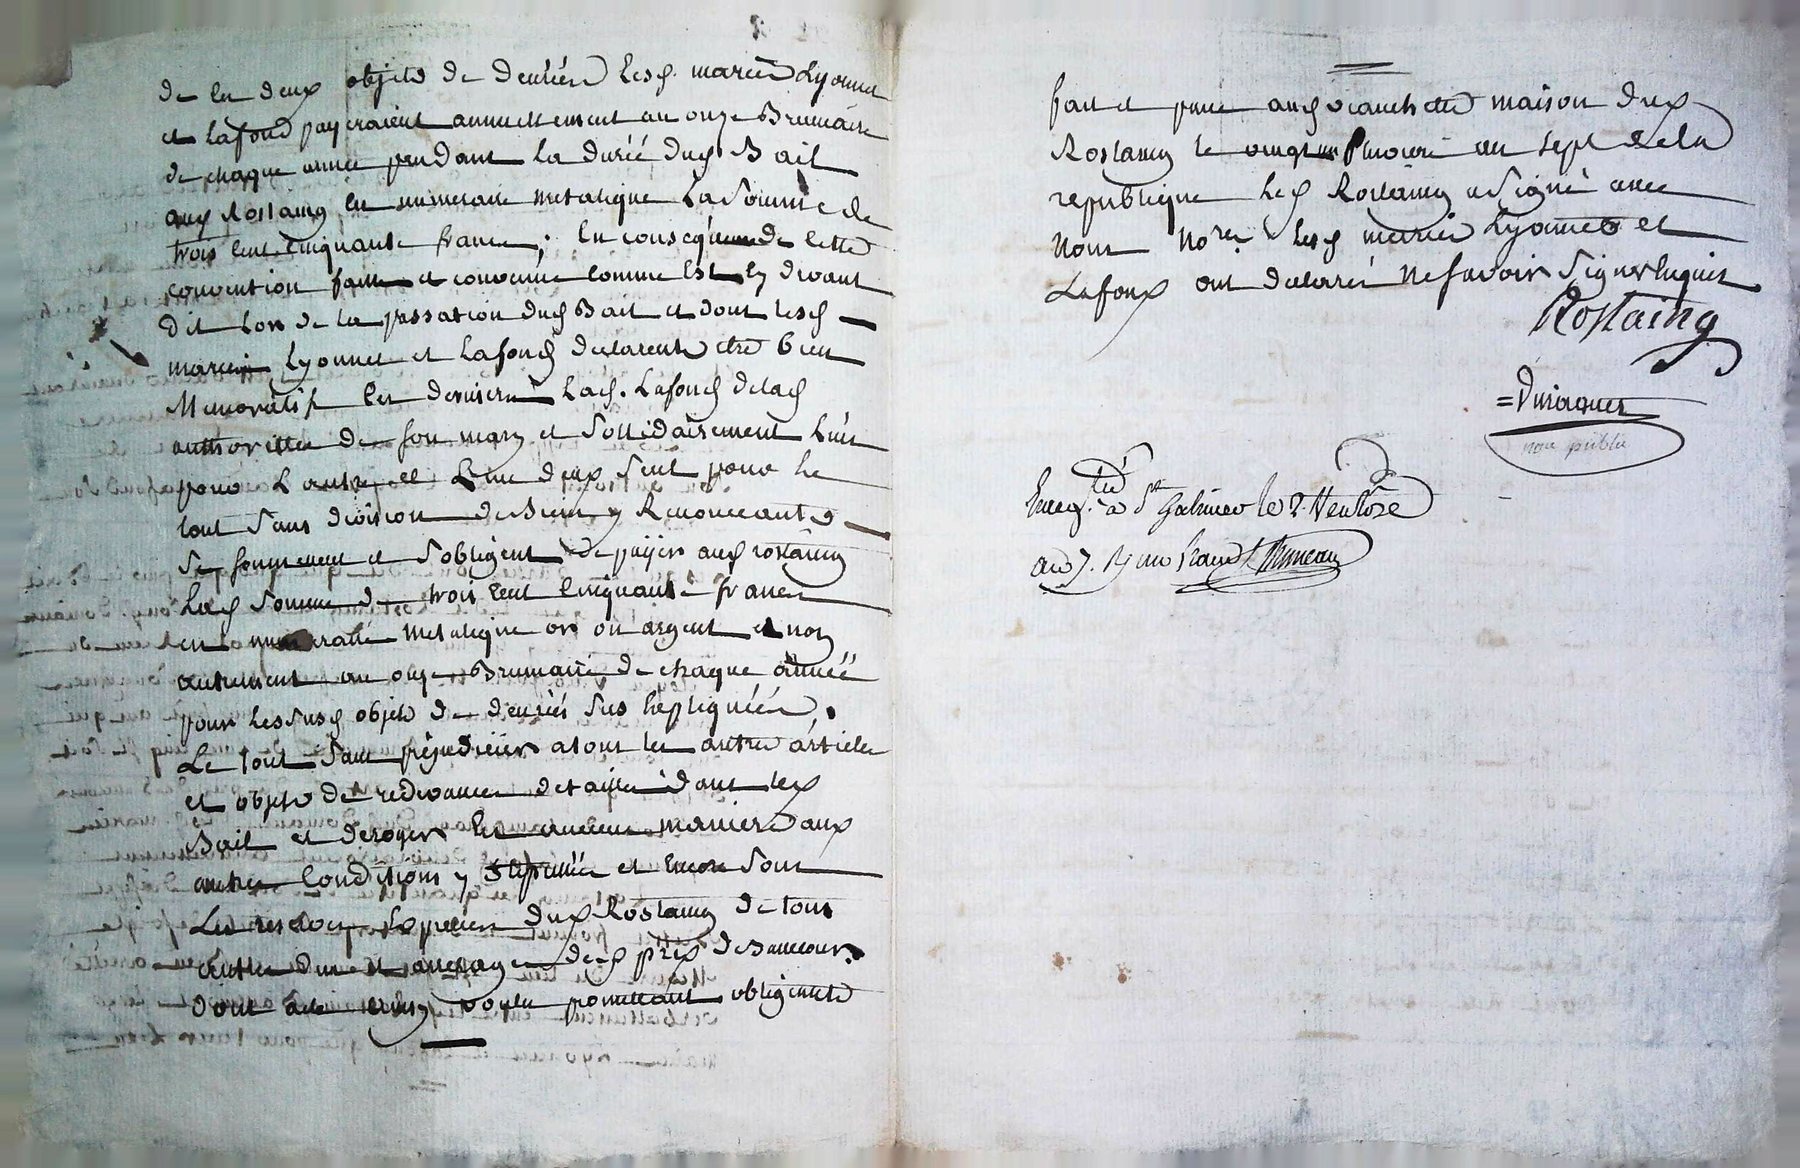 de les deux objets de denrées lesd. mariés Lyonnet
et Lafond payeraient annuellement au onze Brumaire
de chaque année pendant la durée dud Bail
aud Rostaing en numeraire metalique La Somme de
trois cent cinquante francs; En consequence de cette
convention faitte et convenue comme Est cy devant
dit Lors de la passation dud Bail et dont lesd
mariés Lyonnet et Lafond declarent etre bien
Memoratifs ces derniers Lad. Lafond de lad
authorittée de son mary et sollidairement L'un
pour L'autre et L'un deux seul pour le
tout sans division de Biens y Renonceants
se soumettent et s'obligent de payer aud rostaing
Lad somme de trois cent cinquante francs
en numeraire metalique or ou argent et non
autrement au onze Brumaire de chaque année
pour les susd objets de denrées sus Expliquées.
Le tout sans préjudicier a tout les autres articles
et objets de redevances detaillés dans led
Bail et deroger En aucune maniere aux
autres conditions y Stipullées et Encore sous
Les reserves Expresses dud Rostaing de tous
autres dus et arrerages dud prix de
dont acte voulu promettant obligeants
fait et passé aud maison dud
Rostaing le vingt un Pluviose an sept de la
republique Led Rostaing a signé avec
nous no.re Lesd mariés Lyonnet et
Lafond ont declarés ne savoir signer Enquis
Rostaing
nore public
Enreg.tré à St Galmier le 2. Ventôse
an 7. R/ un franc